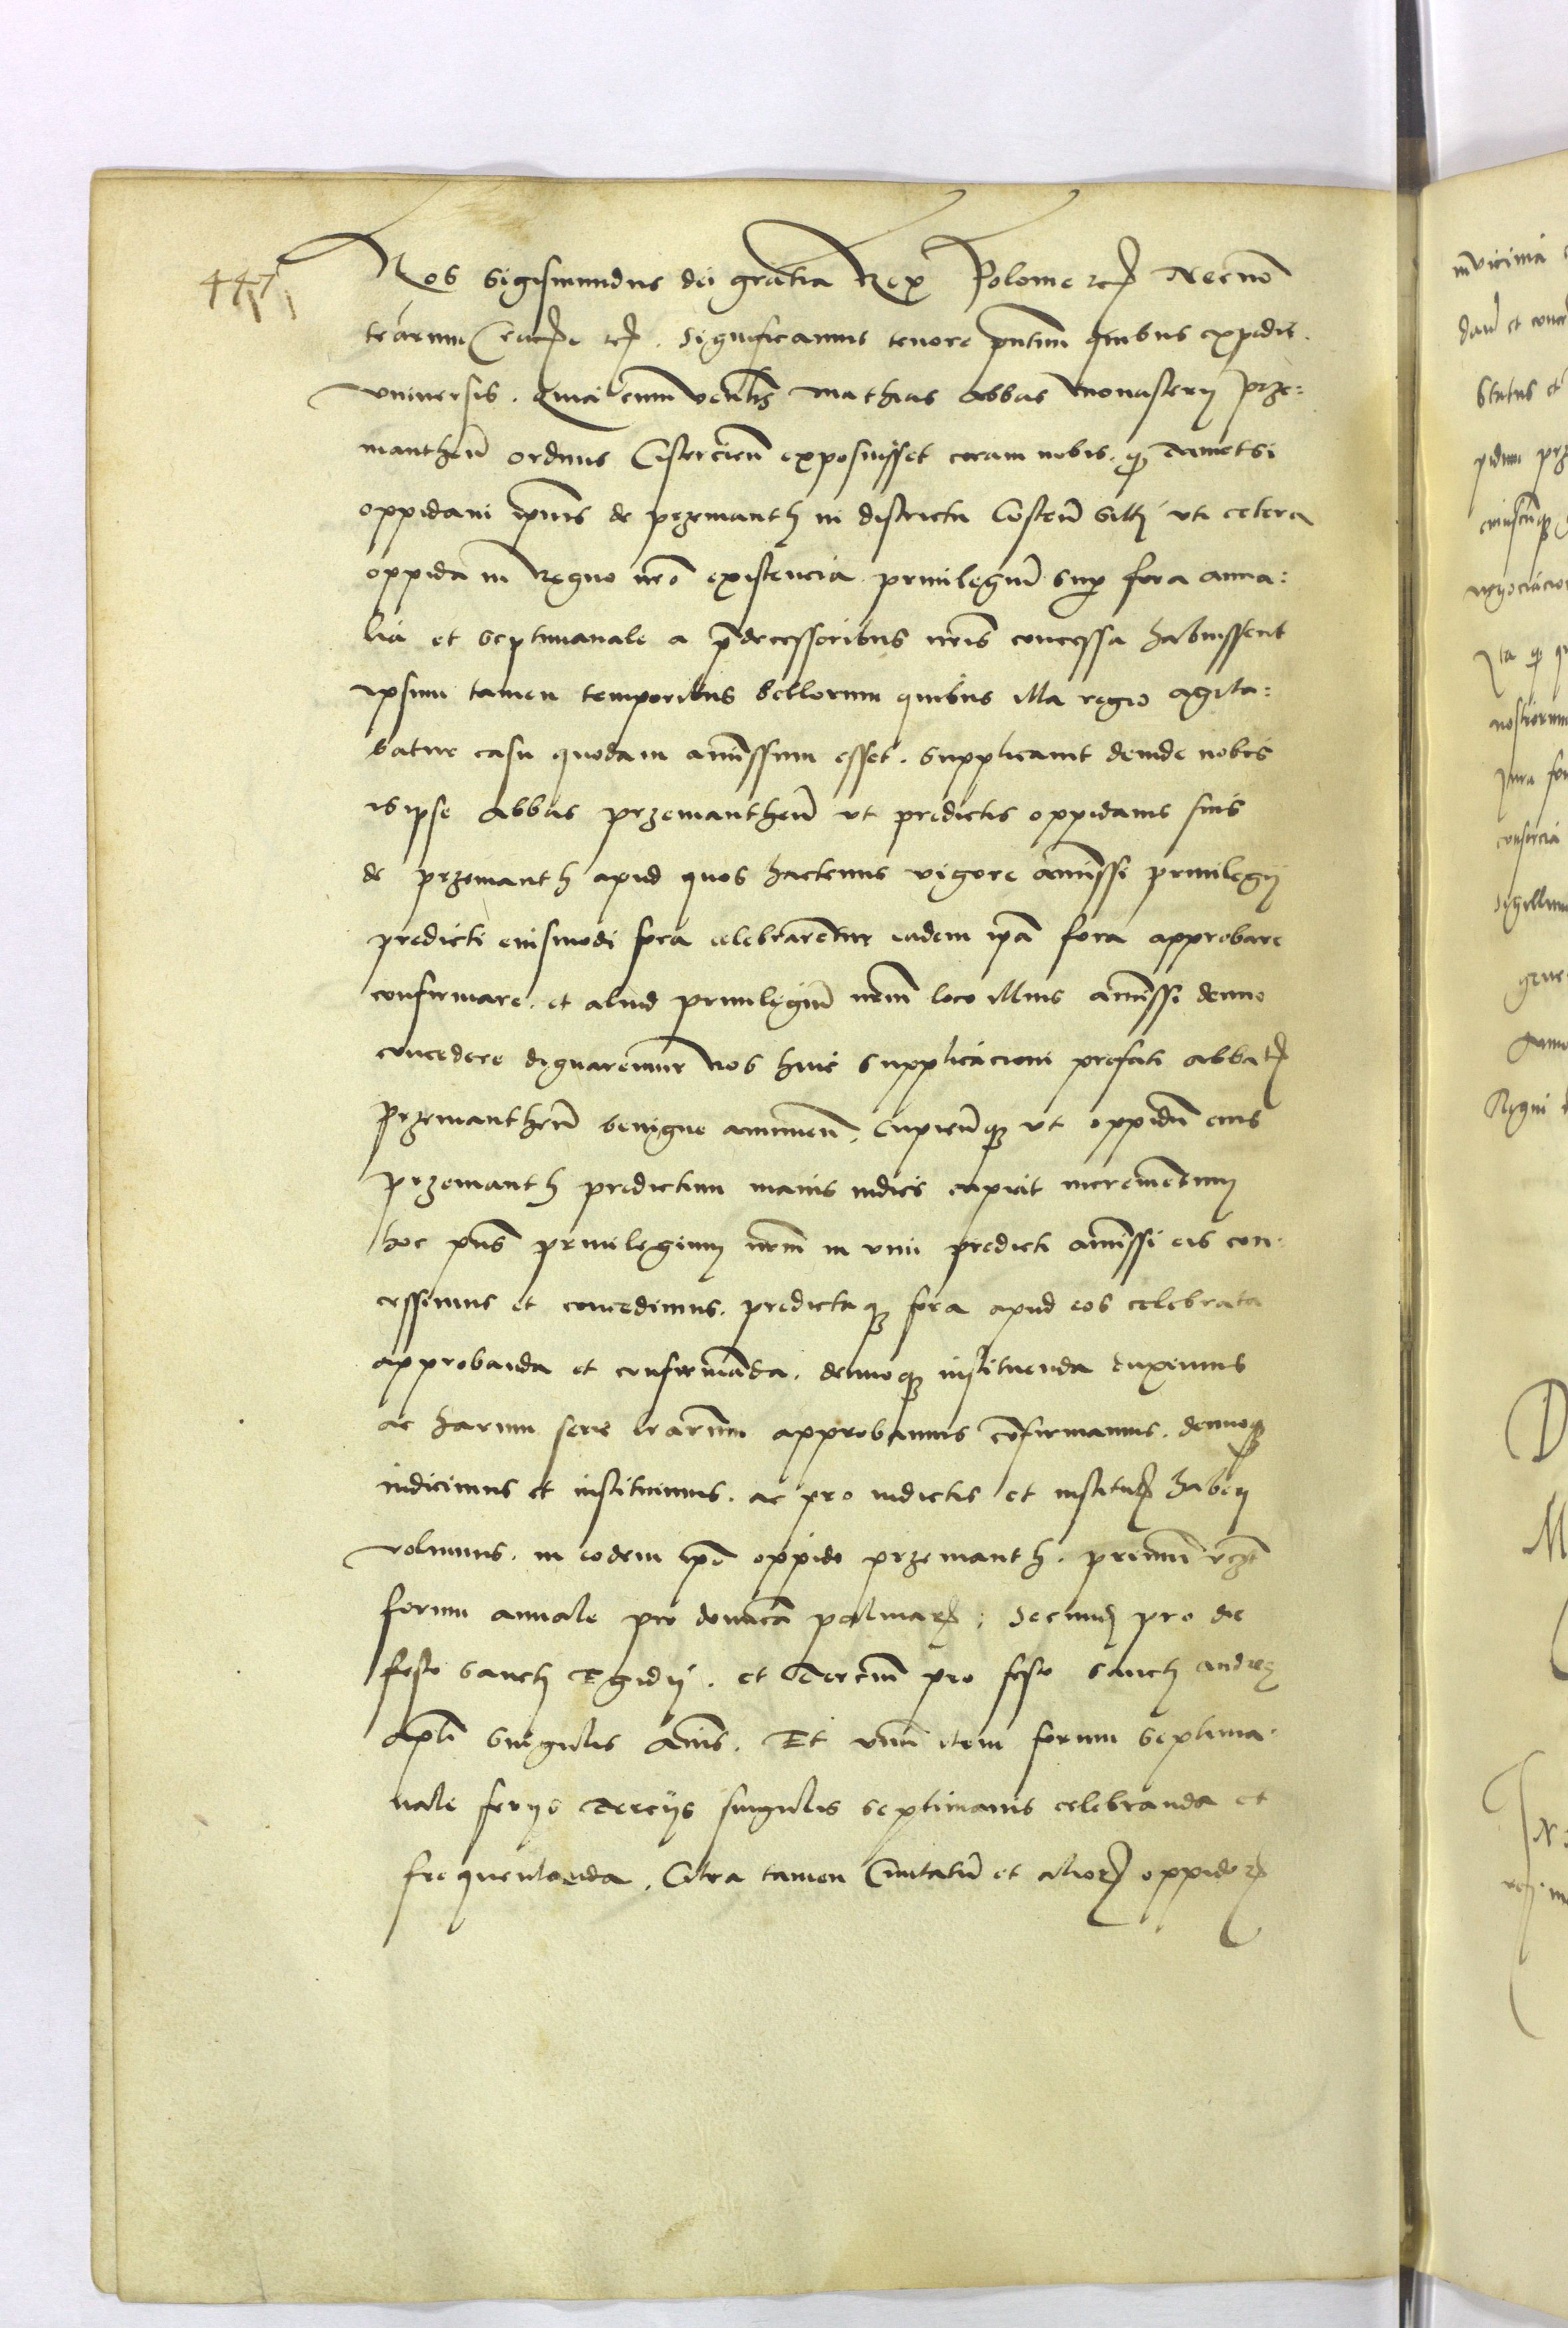 447
Nos Sigismundus dei gratia Rex Polonie rcz Necnõ
trarum Crac rcz. Significamus tenore pntium quibus expedit
vniuersis. Quia cum venlis Mathias Abbas Monasterij prze=
manthen̄ ordinis Cistercien̄ exposuisset coram nobis. ꝙ tametsi
oppidani ipius de przemanth in districtu Costen̄ siti vti cetera
oppida in Regno nrō existencia priuilegiū sup fora annua=
lia et septimanale a p̄decessoribus nrīs concessa habuissent
ipsum tamen temporibus bellorum quibus illa regio agita=
batur casu quodam amissum esset. supplicauit deinde nobis
is ipse Abbas przemanthen̄ vt predictis oppidanis suis
de przemanth apud quos hactenus vigore amissi priuilegij
predicti eiusmodi fora celebrarentur eadem ipā fora approbare
confirmare. et aliud priuilegiū nrm̄ loco illius amissi denuo
concedere dignaremur Nos huic supplicacioni prefati abbatꝭ
przemanthen̄ benigne annuen̄. Cupien̄qꝫ vt oppidū eius
przemanth predictum maius indies capiat incrementum
hoc pn̄s priuilegium nrm̄ in vim predicti amissi eis con=
cessimus et concedimus. predictaqꝫ fora apud eos celebrata
approbanda et confirmanda. denuoqꝫ instituenda duximus
ac harum serie lrarum approbamus cōfirmamus. denuoqꝫ
indicimus et instituimus. ac pro indictis et institutꝭ haberj
volumus. in eodem ipō oppido przemanth. primū vczt
forum annale pro dominica palmarꝝ; Secundū pro die
festo sanctj Egidij. et Tercium pro festo sanctj andree
apli singulis annis. Et vnū item forum septima=
nale ferijs Tercijs singulis septimanis celebranda et
frequentanda. Citra tamen Ciuitatū et aliorꝝ oppidorꝝ